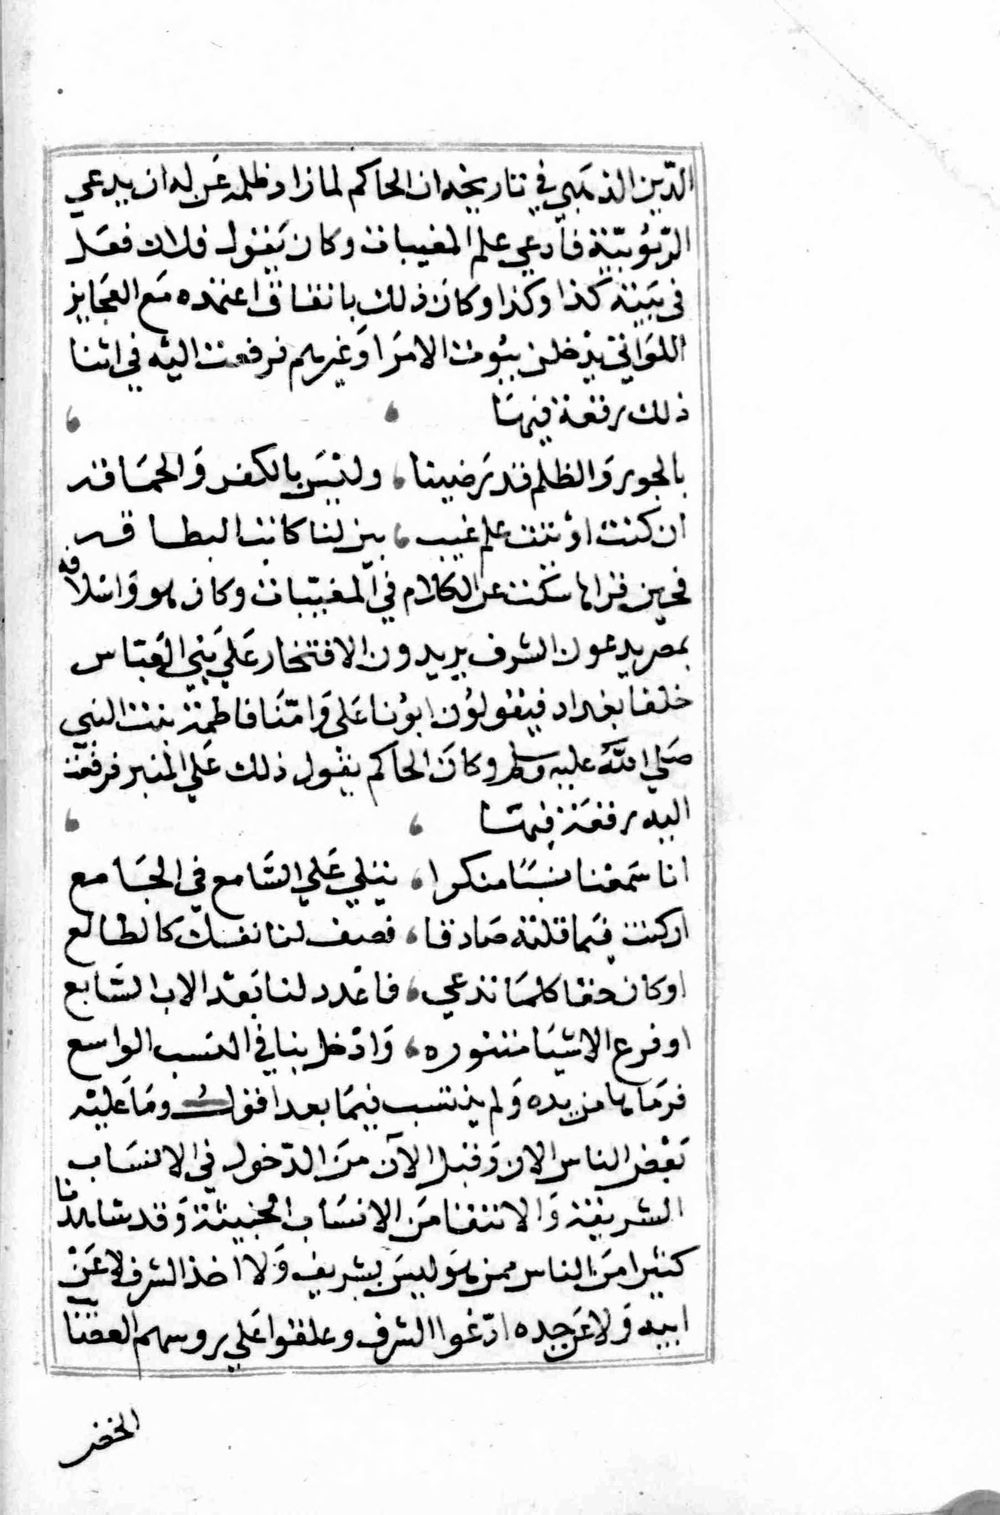 الدين الذهبي في تاريخه ان الحاكم لما زاد ظلمه عن له ان يدعي
الربوبية فادعي علم المغيبات وكان يقول فلان فعل
في بيته كذا وكذا وكان ذلك باتفاق اعتمده مع العجايز
اللواتي يدخلن بيوت الامرا وغيرهم فرفعت اليه في اثنا
ذلك رقعة فيها
بالجور والظلم قد رضينا، وليس بالكفر والحماقه
ان كنت اوتيت علم غيب، بين لنا كاتب البطاقه
فحين قراها سكت عن الكلام في المغيبات وكان هو واسلافه
بمصر يدعون الشرف يريدون الافتخار علي بني العباس
خلفا بغداد فيقولون ابونا علي وامنا فاطمة بنت النبي
صلي الله عليه وسلم وكان الحاكم يقول ذلك علي المنبر فرفعت
اليه رقعة فيها
انا سمعنا نسبا منكرا، يتلي علي السامع في الجامع
ان كنت فيما قلته صادقا، فصف لنا نفسك كالطالع
او كان حقا كلما تدعي، فاعدد لنا بعد الاب السابع
او فدع الاشيا مستوره، وادخل بنا في النسب الواسع
فرماها من يده ولم ينتسب فيما بعد اقول وما عليه
بعض الناس الان وقبل الآن من الدخول في الانساب
الشريفة والانتفا من الانساب الخبيثة وقد شاهدنا
كثيرا من الناس ممن هو ليس بشريف ولا اخذ الشرف لا عن
ابيه ولا عن جده ادعوا الشرف وعلقوا علي روسهم القطنا
الخضر